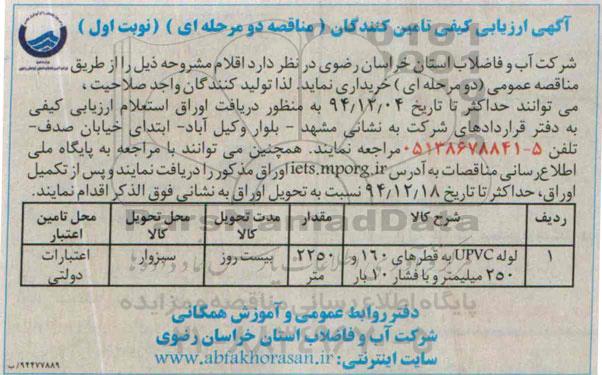 آگهی ارزیابی کیفی تامین کنندگان (مناقصه دو مرحله ای) (نوبت اول)
شرکت آب و فاضلاب استان خراسان رضوی در نظر دارد اقلام مشروحه ذیل را از طریق
مناقصه عمومی (دو مرحله ای) خریداری نماید. لذا تولید کنندگان واجد صلاحیت،
می توانند حداکثر تا تاریخ ۹۴/۱۲/۰۴ به منظور دریافت اوراق استعلام ارزیابی کیفی
به دفتر قراردادهای شرکت به نشانی مشهد - بلوار وکیل آباد- ابتدای خیابان صدف-
تلفن ۵-۰۵۱۳۸۶۷۸۸۴۱ مراجعه نمایند. همچنین می توانند با مراجعه به پایگاه ملی
اطلاع رسانی مناقصات به آدرس iets.mporg.ir اوراق مذکور را دریافت نمایند و پس از تکمیل
اوراق، حداکثر تا تاریخ ۹۴/۱۲/۱۸ نسبت به تحویل اوراق به نشانی فوق الذکر اقدام نمایند.
ردیف شرح کالا مقدار مدت تحویل کالا محل تحویل کالا محل تامین اعتبار
۱ لوله UPVC به قطرهای ۱۶۰ و ۲۵۰ میلیمتر و با فشار ۱۰ بار ۲۲۵۰ متر بیست روز سبزوار اعتبارات دولتی
دفتر روابط عمومی و آموزش همگانی
شرکت آب و فاضلاب استان خراسان رضوی
سایت اینترنتی: www.abfakhorasan.ir
۹۴۴۷۷۸۸۹/ب
ParsNamadData
پایگاه اطلاع رسانی مناقصه و مزایده